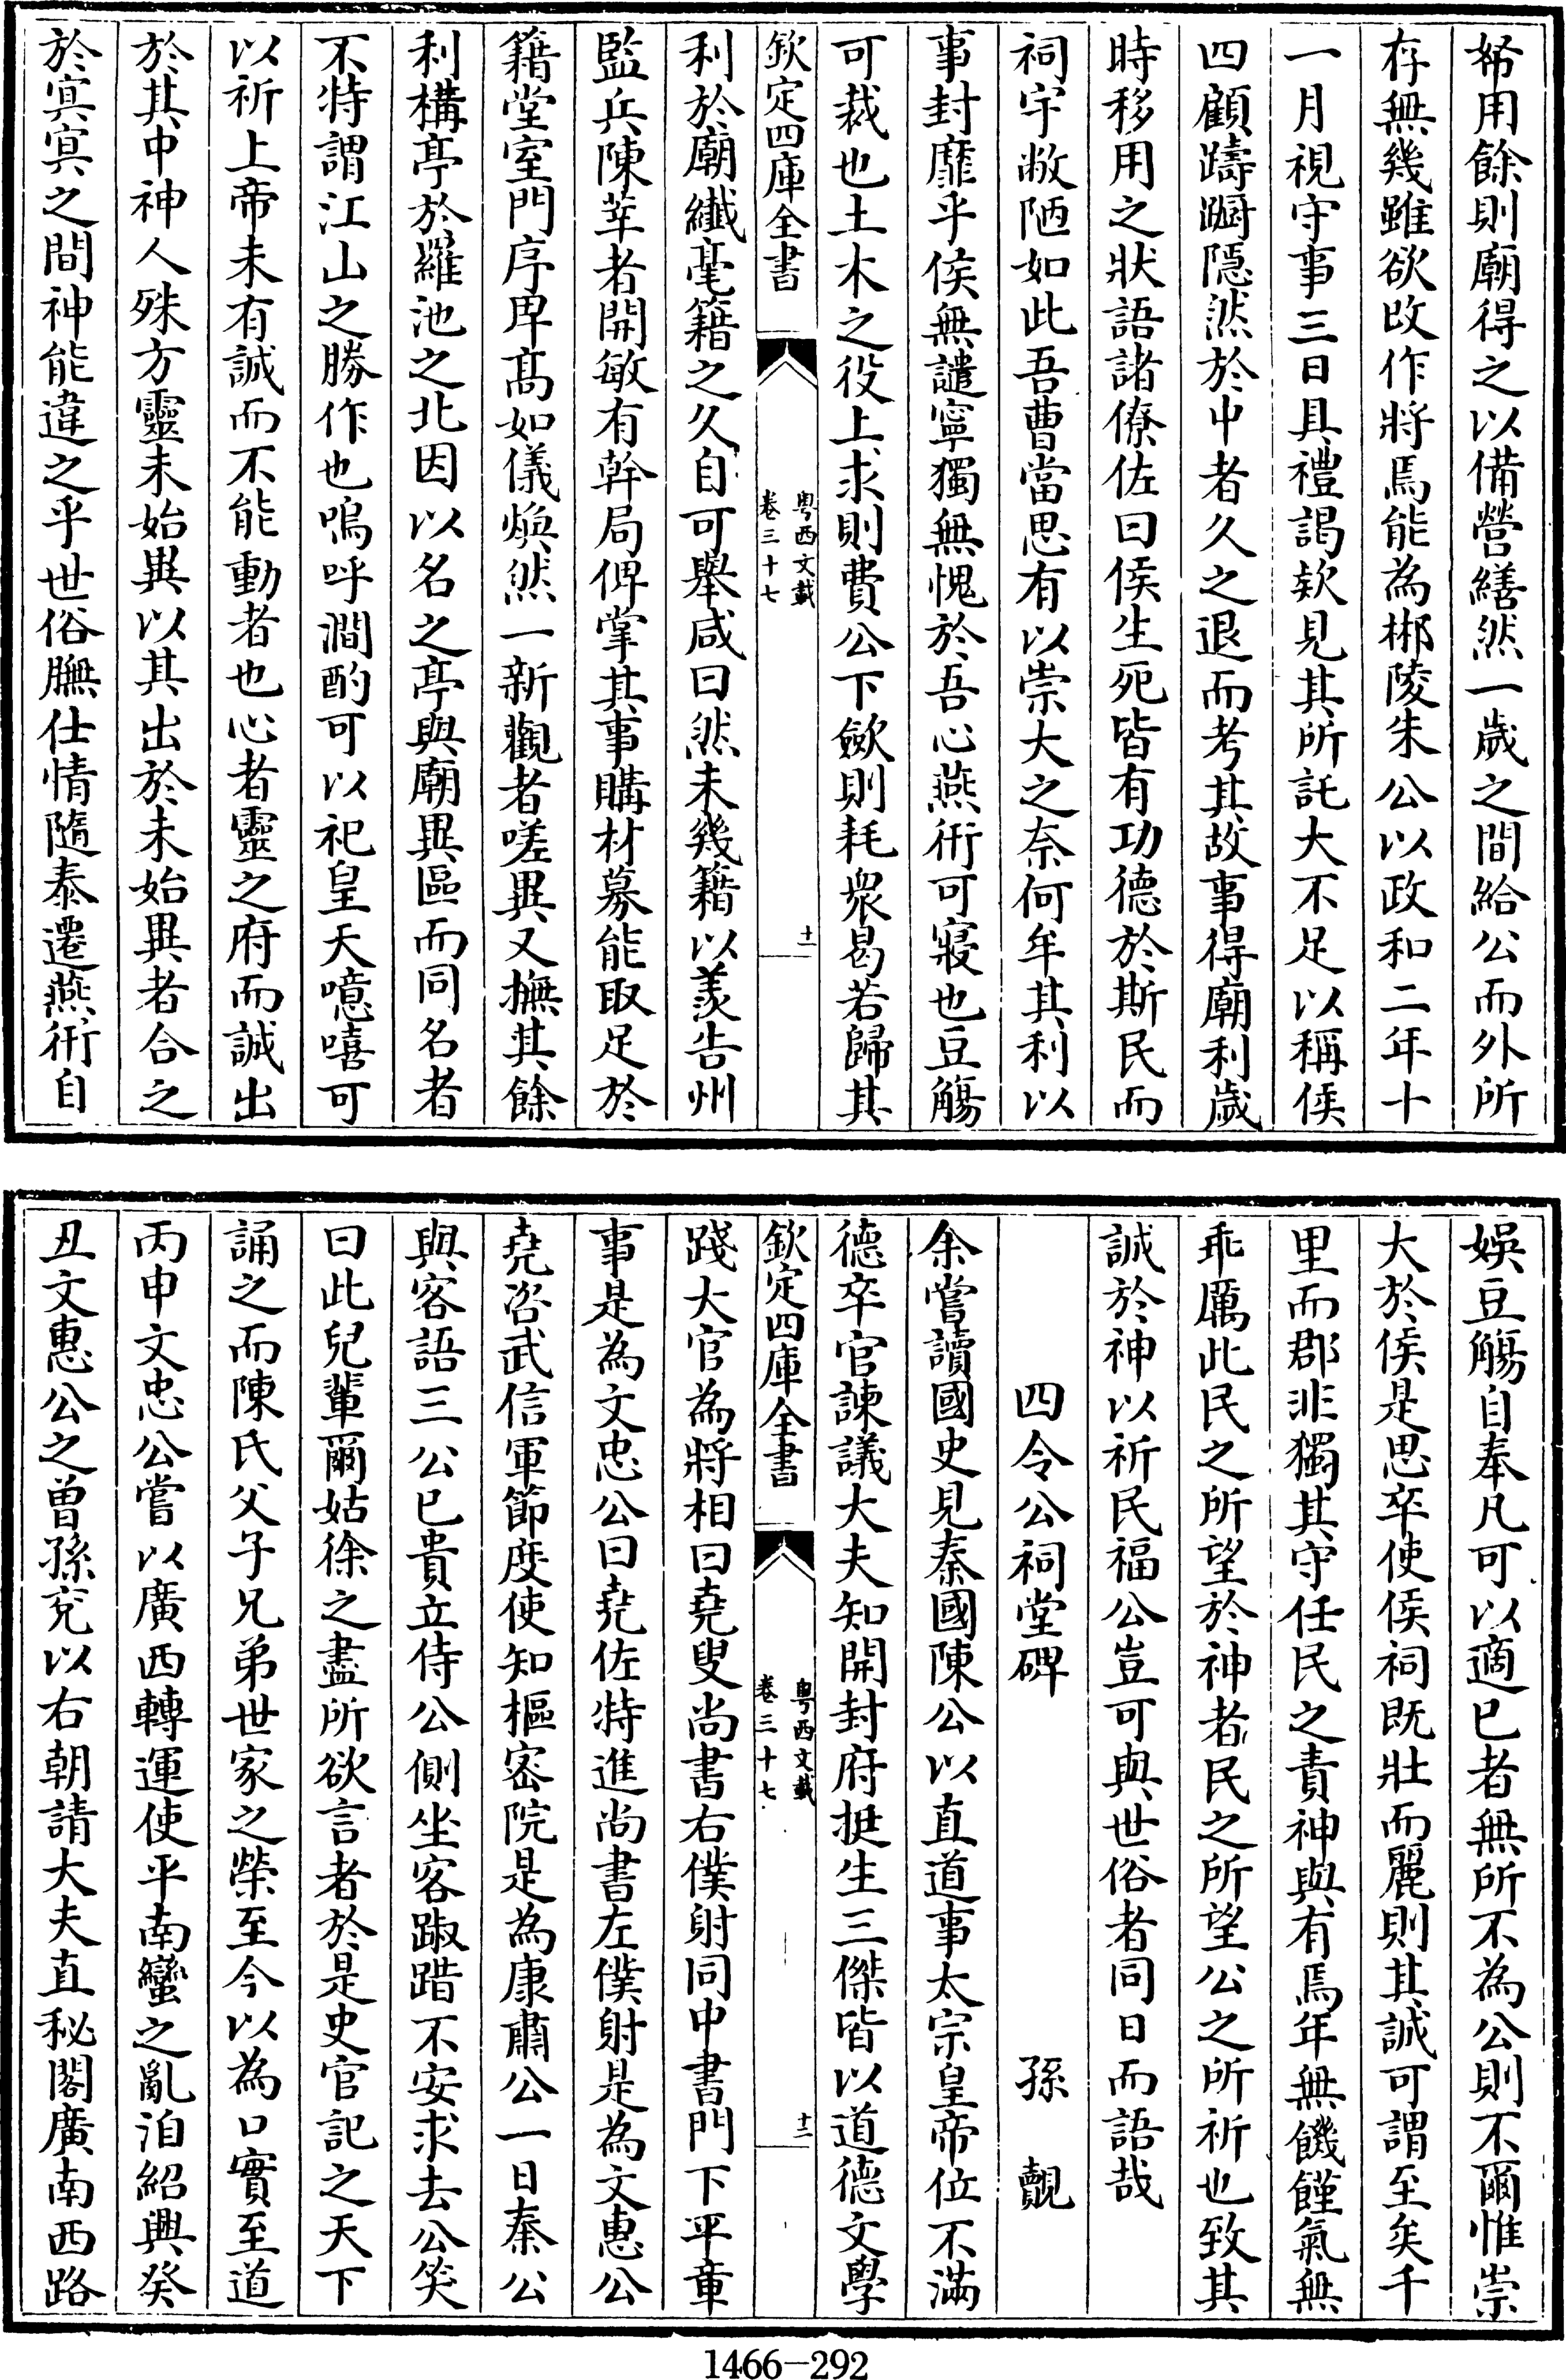 帑用餘則廟得之以備營繕然一歲之間給公而外所
存無幾雖欲改作將焉能為郴陵朱公以政和二年十
一月視守事三日具禮謁欵見其所託大不足以稱侯
四顧躊躇隱然於中者久之退而考其故事得廟利歲
時移用之狀語諸僚佐曰侯生死皆有功德於斯民而
祠宇敝陋如此吾曹當思有以崇大之奈何牟其利以
事封靡乎侯無譴寧獨無愧於吾心燕術可寢也豆觴
可裁也土木之役上求則費公下歛則耗衆曷若歸其
欽定四庫全書
粤西文載
卷三十七
十一
利於廟纖毫籍之久自可舉咸曰然未幾籍以羨告州
監兵陳莘者開敏有幹局俾掌其事購材募能取足於
籍堂室門序卑髙如儀煥然一新觀者嗟異又撫其餘
利構亭於羅池之北因以名之亭與廟異區而同名者
不特謂江山之勝作也嗚呼澗酌可以祀皇天噫嘻可
以祈上帝未有誠而不能動者也心者靈之府而誠出
於其中神人殊方靈未始異以其出於未始異者合之
於㝠㝠之間神能違之乎世俗膴仕情隨泰遷燕術自
娛豆觴自奉凡可以適已者無所不為公則不爾惟崇
大於侯是思卒使侯祠既壯而麗則其誠可謂至矣千
里而郡非獨其守任民之責神與有焉年無饑饉氣無
乖厲此民之所望於神者民之所望公之所祈也致其
誠於神以祈民福公豈可與世俗者同日而語哉
四令公祠堂碑 孫覿
余嘗讀國史見秦國陳公以直道事太宗皇帝位不滿
德卒官諫議大夫知開封府挺生三傑皆以道德文學
欽定四庫全書
粤西文載
卷三十七
十二
踐大官為將相曰堯叟尚書右僕射同中書門下平章
事是為文忠公曰堯佐特進尚書左僕射是為文惠公
堯咨武信軍節度使知樞宻院是為康肅公一日秦公
與客語三公已貴立侍公側坐客踧踖不安求去公笑
曰此兒輩爾姑徐之盡所欲言者於是史官記之天下
誦之而陳氏父子兄弟世家之榮至今以為口實至道
丙申文忠公嘗以廣西轉運使平南蠻之亂洎紹興癸
丑文惠公之曾孫兖以右朝請大夫直秘閣廣南西路
1466-292